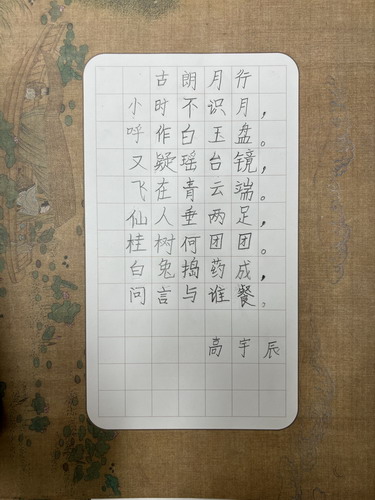 古朗月行
小时不识月，
呼作白玉盘。
又疑瑶台镜，
飞在青云端。
仙人垂两足，
桂树何团团。
白兔捣药成，
问言与谁餐。
高宇辰